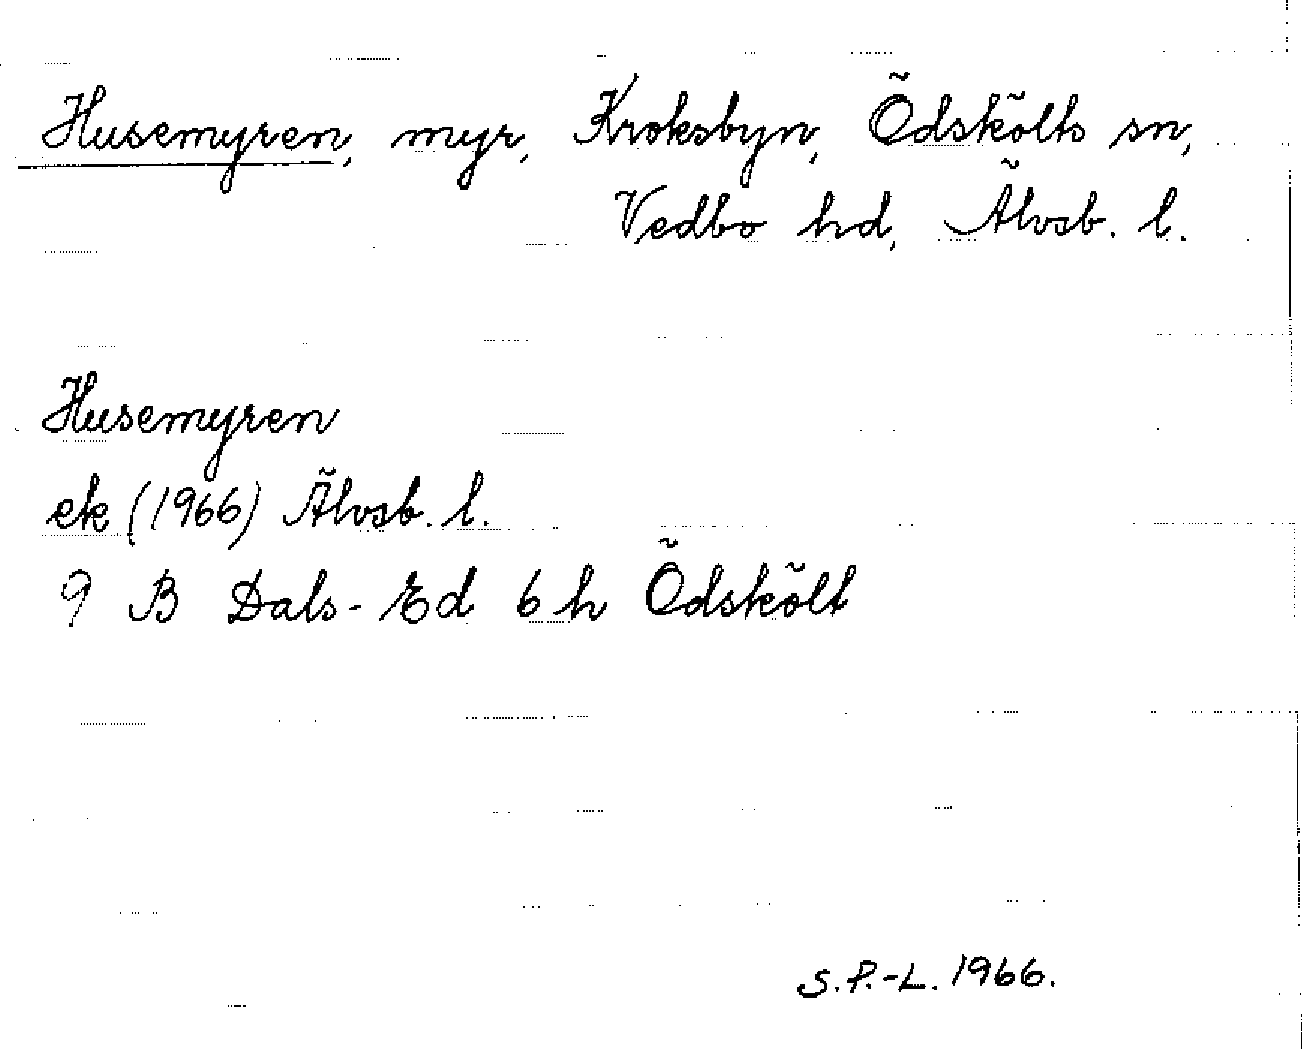 Husemyren, myr, Kroksbyn, Ödskölts sn,
Vedbo hd, Älvsb. l.
Husemyren
ek (1966) Älvsb. l.
9 B Dals-Ed 6 h Ödskölt
S.P.-L. 1966.